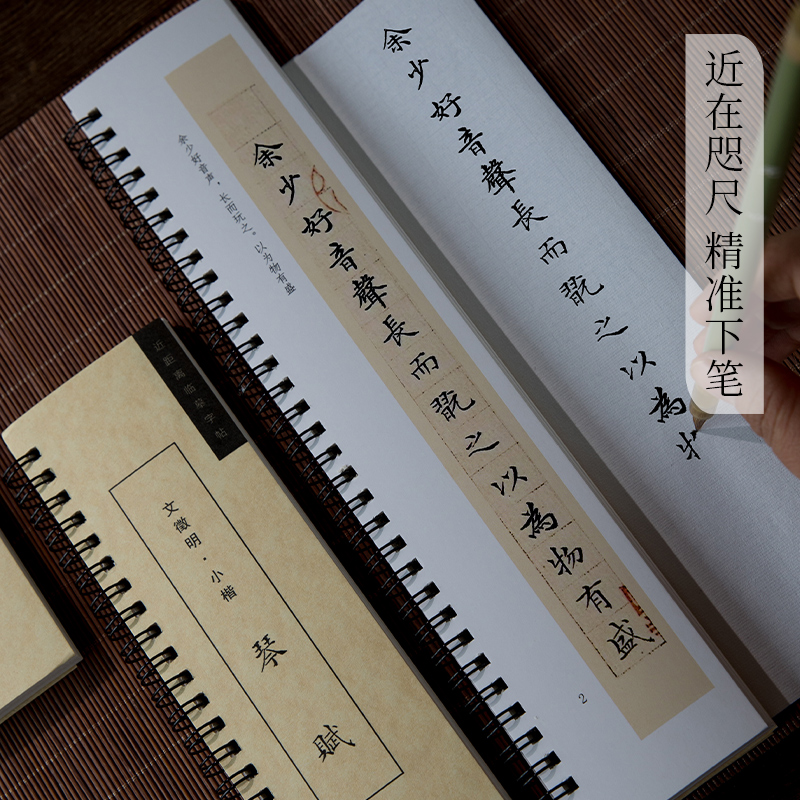 近在咫尺 精准下笔
余少好音聲長而翫之以為物
余少好音聲長而翫之以為物有盛
余少好音声，长而玩之。以为物有盛
2
近距离临摹字帖
文徵明·小楷
琴賦